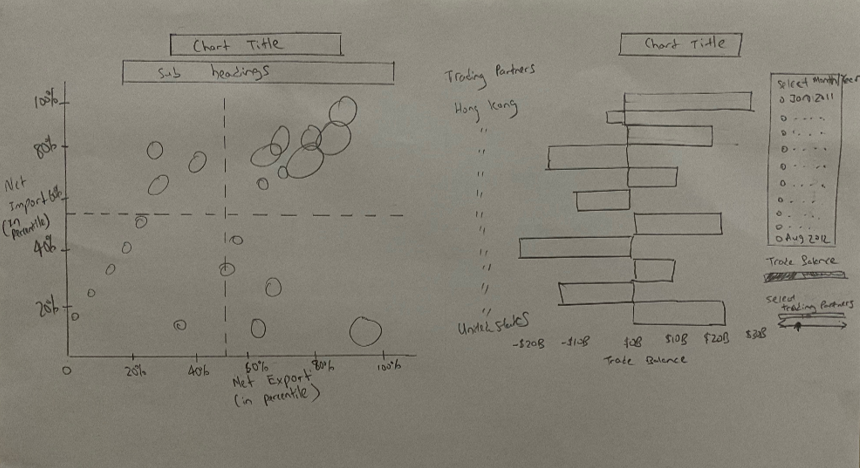 Chart Title
Sub headings
100%
80%
Net
Import
(in
percentile)
40%
20%
0
20%
40%
60%
80%
100%
Net Export
(in percentile)
Chart Title
Trading Partners
Hong Kong
"
"
"
"
"
"
"
"
"
United States
-$20B
-$10B
$0B
$10B
$20B
$30B
Trade Balance
Select Month/Year
Jan 2011
.....
.....
.....
.....
.....
.....
.....
.....
Aug 2012
Trade Balance
Select
Trading Partners